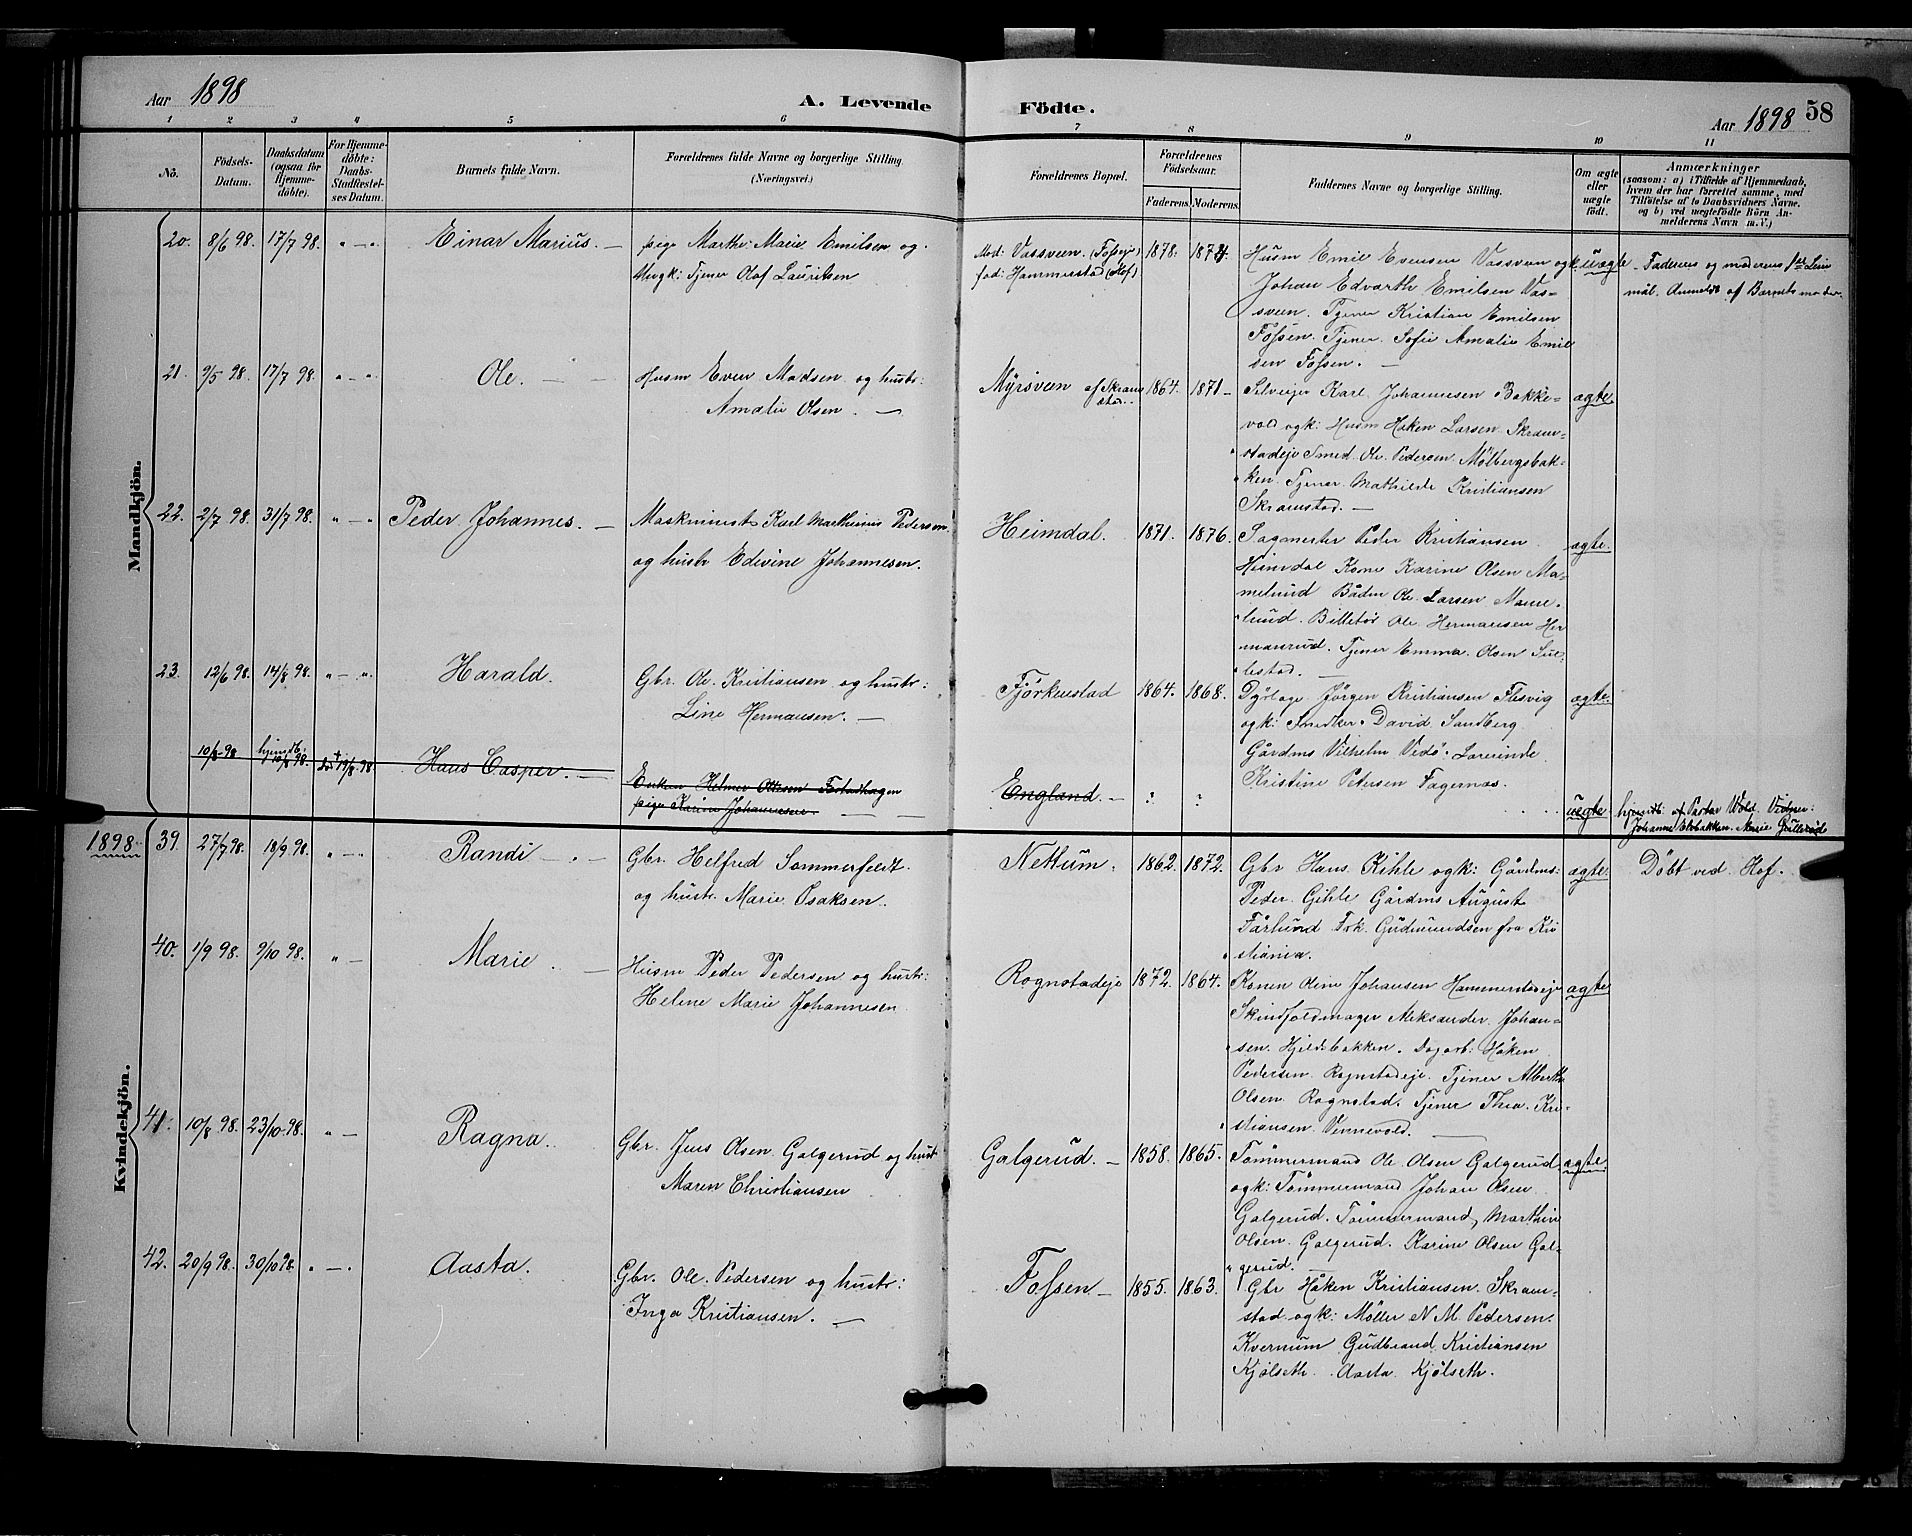 Aar 1898
A. Levende
Födte.
Aar 1898
58
1 2 3 4 5 6 7 8 9 10 11
No.
Födsels-
Datum.
Daabsdatum
(ogsaa for
Hjemme-
døbte).
For Hjemme-
døbte:
Daabs-
Stadfæstel-
ses Datum.
Barnets fulde Navn.
Forældrenes fulde Navne og borgerlige Stilling
(Næringsvei.)
Forældrenes Bopæl.
Forældrenes
Födselsaar.
Faderens. Moderens.
Faddernes Navne og borgerlige Stilling.
Om ægte
eller
uægte
födt.
Anmærkninger
(saasom: a) i Tilfælde af Hjemmedaab,
hvem der har forrettet samme, med
Tilföielse af to Daabsvidners Navne.
og b) ved uægtefödte Börn An-
melderens Navn m.V.)
Mandkjön.
20. 8/6 98. 17/7 98. " - " Einar Marius. —
pige Marthe Marie Emilsen og
Ungk: Tjener Olaf Lauritsen
Mod: Vassveen. (Fosseje)
fad: Hammerstad (Hof)
1878. 1874.
Husm Emil Evensen Vassveen ogk:
Johan Edvarth Emilsen Vas-
sveen. Tjener Kristian Emilsen
Fossen. Tjener Sofie Amalie Emil
sen Fossen. —
uægte
Faderens og moderens 1ste Leier
mål. Anmeldt af Barnets moder.
21. 9/5 98. 17/7 98. " - " Ole. — —
Husm Even Madsen og hustr:
Amalie Olsen. —
Myrsveen af Skram
stad..
1864. 1871 -
Selveier Karl Johannesen Bakke-
vold ogk: Husm Håken Larsen Skram-
stadeje Smed Ole Pedersen Mølbergsbak-
ken. Tjener Mathilde Kristiansen
Skramstad. —
ægte
22. 2/7 98. 31/7 98. " - " Peder Johannes. —
Maskinnist Karl Marthinius Pedersen
og hustr Edevine Johannesen.
Heimdal.
1871. 1876.
Sagmester Peder Kristiansen
Heimdal Kone Karine Olsen Ma-
melund Båden Ole Larsen Mame-
lund. Billetør Ole Hermansen Her
manrud. Tjener Emma Olsen Sul-
lestad. —
ægte.
23. 12/6 98. 14/8 98. " - ". Harald.
Gbr. Ole Kristiansen og hustr:
Line Hermansen. —
Fjörkenstad
1864. 1868.
Dyrlæge Jørgen Kristiansen Flesvig
ogk: Snedker David Sandberg
Gårdms Vilhelm Vidø. Lærerinde
Kristine Petersen Fagernæs.
ægte.
10/8 98 hjemdb. 10/8 98. død 19/8 98. Hans Casper. —
Enken Helmer Ottesen Fostadhagen
pige Karine Johannesen. — —
England. —
? ?
uægte
hjemdb. af Pastor Wold. Vidner:
Johanne Elvbakken. Marie Gullerud
Kvindekjön.
1898. 39. 27/7 98. 18/9 98. " - " Randi — " —
Gbr. Helfred Sommerfeldt
og hustr. Marie Isaksen.
Nettum.
1862. 1872.
Gbr Hans Kihle ogk: Gårdms:
Peder Gihle Gårdms August
Fårlund Frk. Gudmundsen fra Kri
stiania.
ægte.
Döbt ved Hof.
40. 1/9 98. 9/10 98. " — Marie. —
Husm Peder Pedersen og hustr:
Helene Marie Johannesen
Rognstadeje
1872. 1864.
Konen Oline Johansen Hammerstadeje
Skindfoldmager Aleksander Johan-
sen. Hjeldsbakken. Dagarb: Håken
Pedersen Rognstadeje. Tjener Alberth
Olsen Rognstad. Tjener Thea Kri-
stiansen Vennevold. —
ægte
41. 10/8 98. 23/10 98. " — Ragna.
Gbr. Jens Olsen Galgerud og hust
Maren Christiansen
Galgerud. —
1858. 1865.
Tømmermand Ole Olsen Galgerud
ogk: Tømmermand Johan Olsen
Galgerud. Tømmermand, Marthin
Olsen. Galgerud. Karine Olsen Gal-
gerud.
ægte.
42. 20/9 98. 30/10 98. " — . Aasta.
Gbr. Ole Pedersen og hustr:
Inga Kristiansen. —
Fossen —
1855. 1863.
Gbr Håken Kristiansen Skram-
stad ogk: Møller N M. Pedersen.
Kvernum Gudbrand Kristiansen
Kjölseth. Aasta Kjölseth.